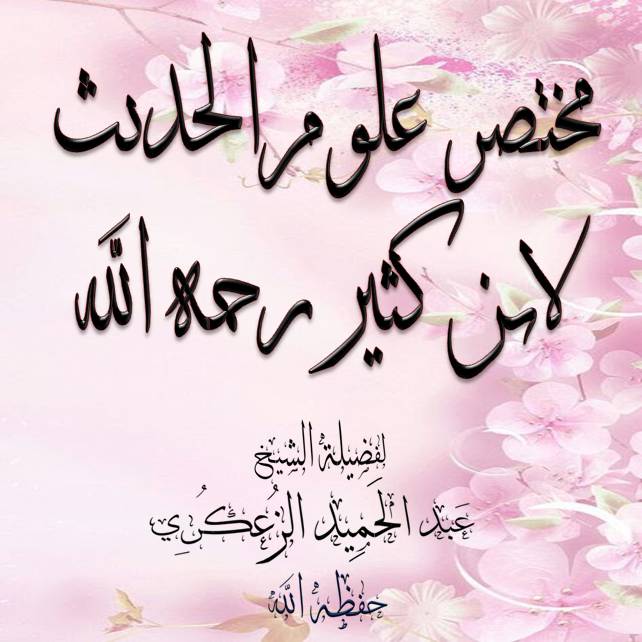 مختصر علوم الحديث
لابن كثير رحمه الله
لِفَضِيلة الشيخ
عَبد الحَمِيد الزُعكُرِي
حفظه الله